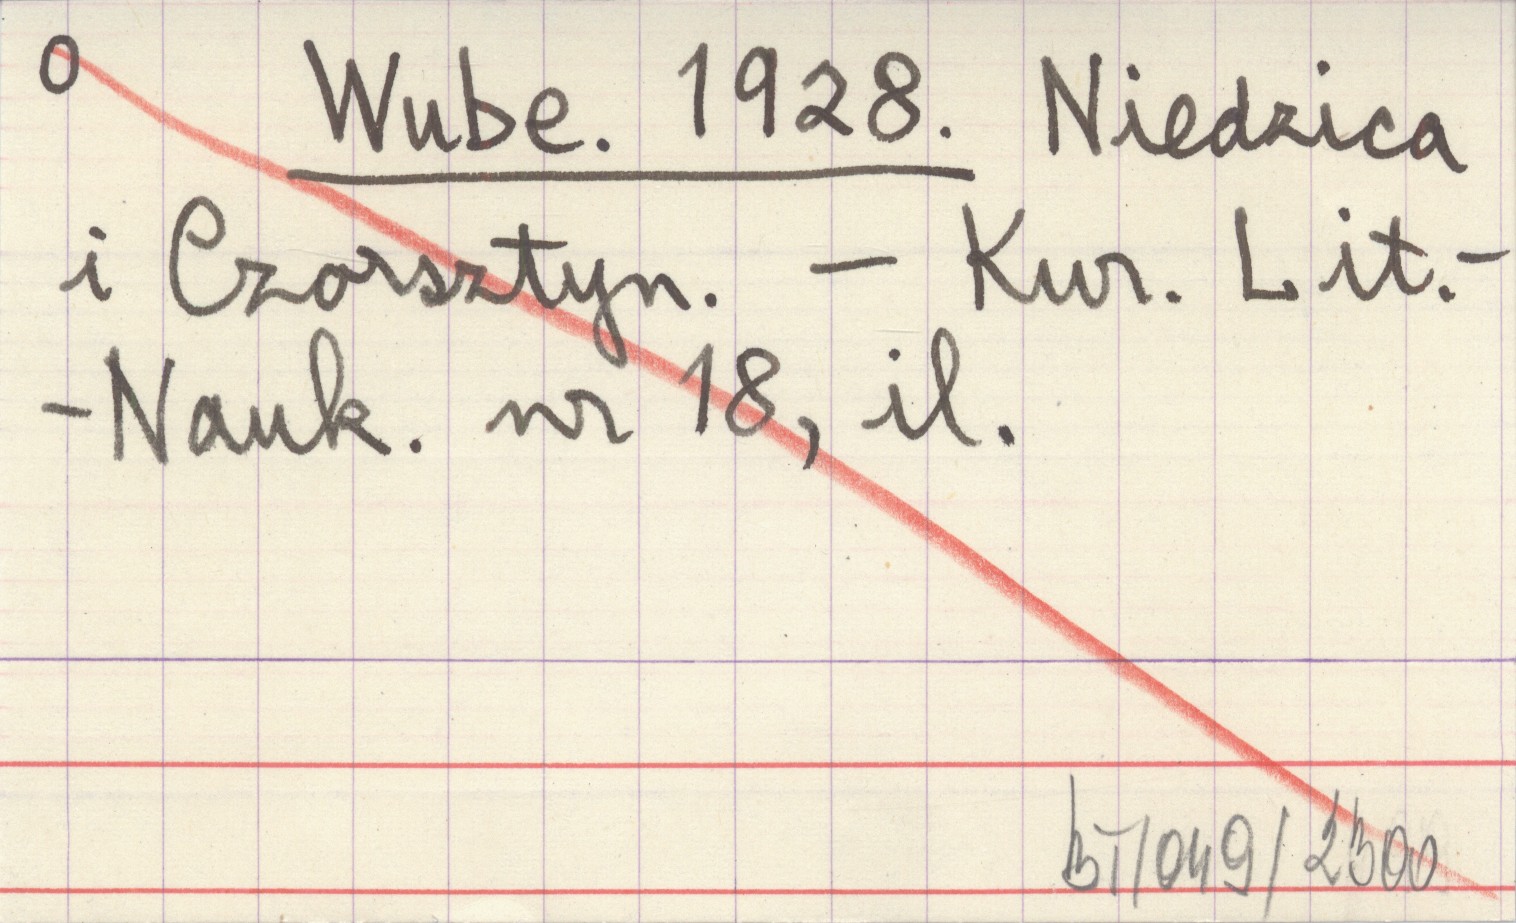 0 Wube. 1928. Niedzica
i Czorsztyn. — Kur. Lit.-
-Nauk. nr 18, il.
BT/049/2300